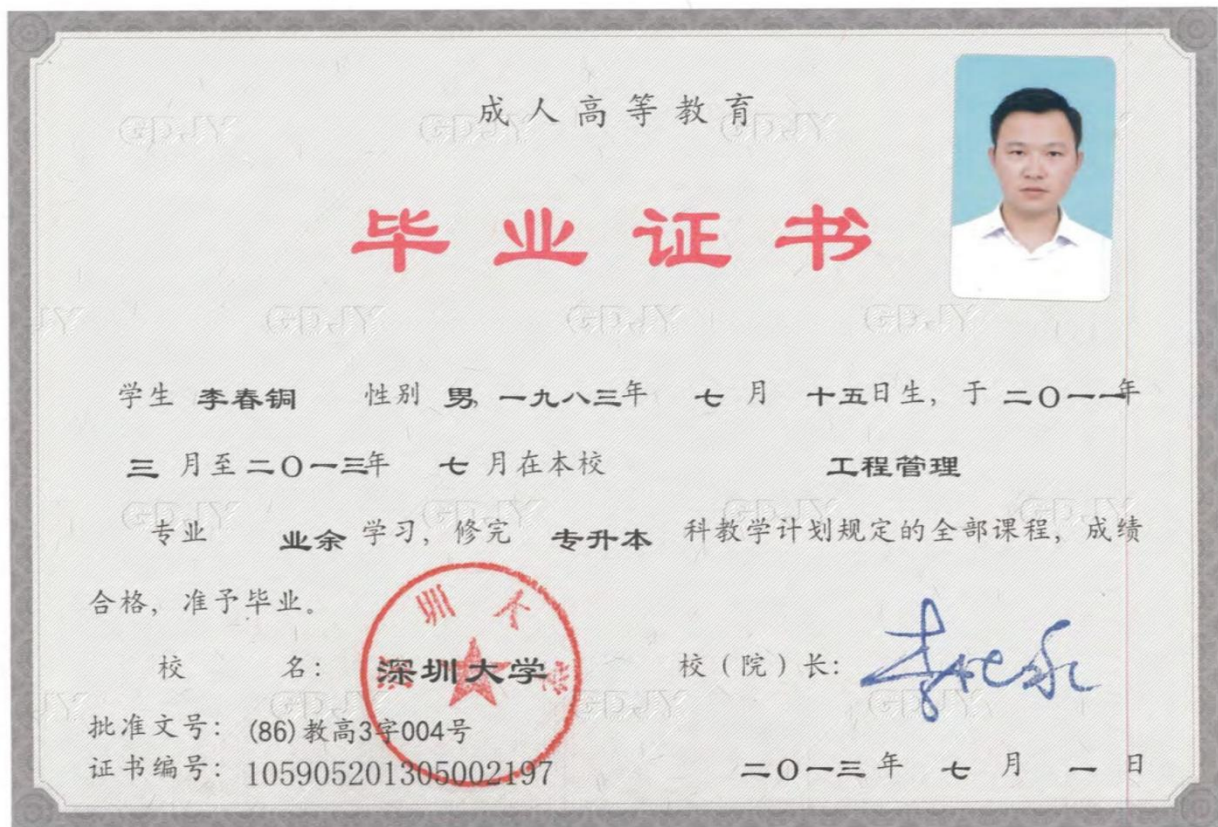 成人高等教育
毕业证书
学生 李春铜 性别 男, 一九八三年 七 月 十五日生, 于 二〇一一年
三 月至二〇一三年 七 月在本校 工程管理
专业 业余 学习, 修完 专升本 科教学计划规定的全部课程, 成绩
合格, 准予毕业。
校 名: 深圳大学 校（院）长:
批准文号: (86)教高3字004号
证书编号: 105905201305002197
二〇一三年 七 月 一 日
GDJY